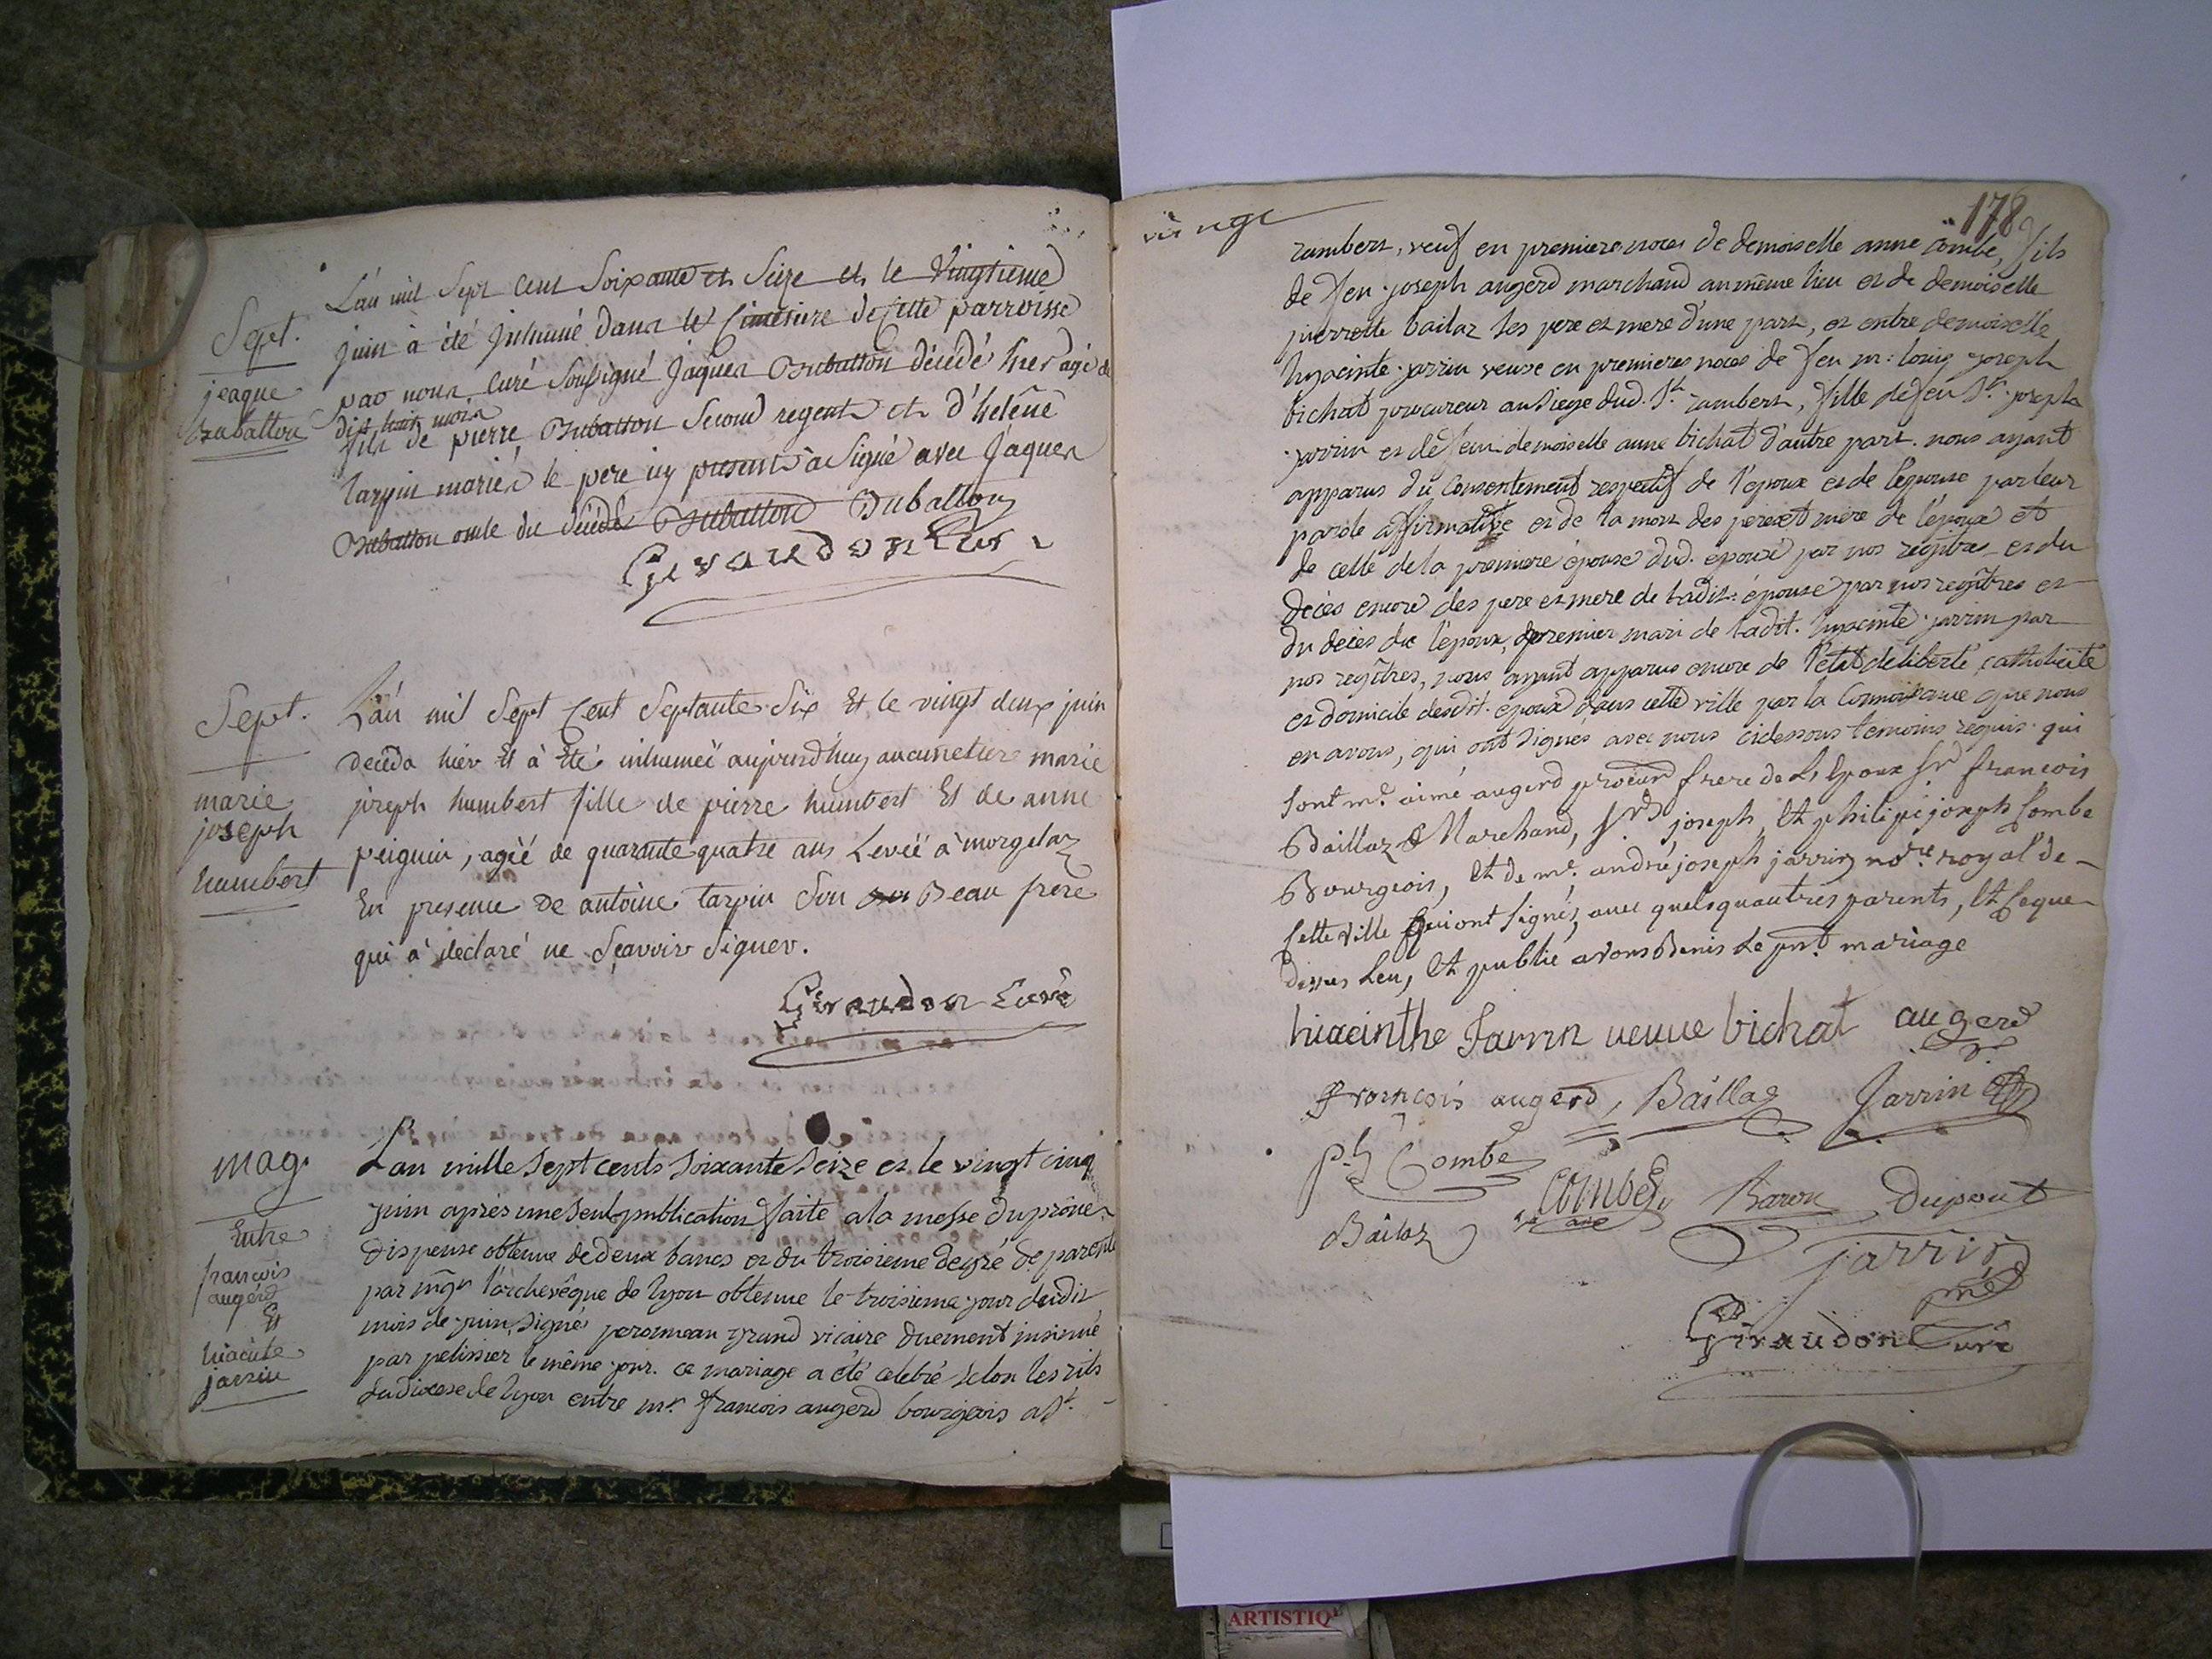 Sept.
jeaque
Dubattou
L'an mil Sept Cent Soixante et Seize et le Vingtieme
juin à été Juhumé Dans le Cimetiere de Cette parroisse
par nous Curé Soussigné Jaques Dubattou décédé hier agé de
dix huit mois
fils de pierre Dubattou Second regent et d'heléne
tarpin mariés le pere icy present à Signé avec Jaques
Dubattou oncle du décédé Dubattou Dubattou
Giraudon Curé
Sept.
marie
joseph
humbert
L'an mil Sept Cent Septante Six Et le vingt deux juin
deceda hier Et à Eté inhumeé aujourd'huy au cimetiere marie
joseph humbert fille de pierre humbert Et de anne
peiguin, agéé de quarante quatre ans Levéé à morgelaz
En presence De antoine tarpin Son Beau frere
qui à declaré ne Sçavoir Signer.
Giraudon Curé
mag.
Entre
françois
augerd
Et
hiacinte
jarrin
L'an mille sept cents soixante seize et le vingt cinq
juin après une seule publication faite a la messe du prône
dispense obtenue de deux bancs et du troisieme degré de parenté
par mgr l'archevêque de lyon obtenue le troisieme jour dudit
mois de juin, signés grand vicaire duement insinué
par pelissier le même jour. ce mariage a été celebré selon les rits
du diocese de lyon entre mr. françois augerd bourgeois a st.
178
rambert, veuf en premiere noces de demoiselle anne combe, fils
de feu joseph augerd marchand au même lieu et de demoiselle
pierrette bailaz ses pere et mere d'une part, et entre demoiselle
hyacinte jarrin veuve en premieres noces de feu m: louis joseph
bichat procureur au siege dud. st. rambert, fille de feu sr. joseph
jarrin et de feue demoiselle anne bichat d'autre part. nous ayant
apparus du consentement respectif de l'epoux et de l'epouse par leur
parole affirmative et de la mort des pere et mere de l'époux et
de celle de la premiere épouse dud. epoux par nos regitres et du
decès encore des pere et mere de ladit. épouse par nos regitres et
du decès de l'epoux, premier mari de ladit. hyacinte jarrin par
nos regitres, nous ayant apparus encore de l'état de liberté, catholicité
et domicile desdit. epoux dans cette ville par la connoissance que nous
en avons, qui ont signes avec nous cidessous temoins requis qui
sont me. aimé augerd frere de L'Epoux Sr françois
Baillaz Marchand, Srs joseph, Et philipe joseph Combe
Bourgeois, Et de me. andré joseph jarrin nore. royal de
Cette ville qui ont signés, avec quelqu'autres parents, Et Ceque
dessus Leu, Et publié avons Benis Le pnt. mariage
hiacinthe Jarrin veuve bichat augerd
françois augerd, Baillaz Jarrin
ph Combe
Combe Baron Dupont
Bailaz
jarrin
Giraudon Curé